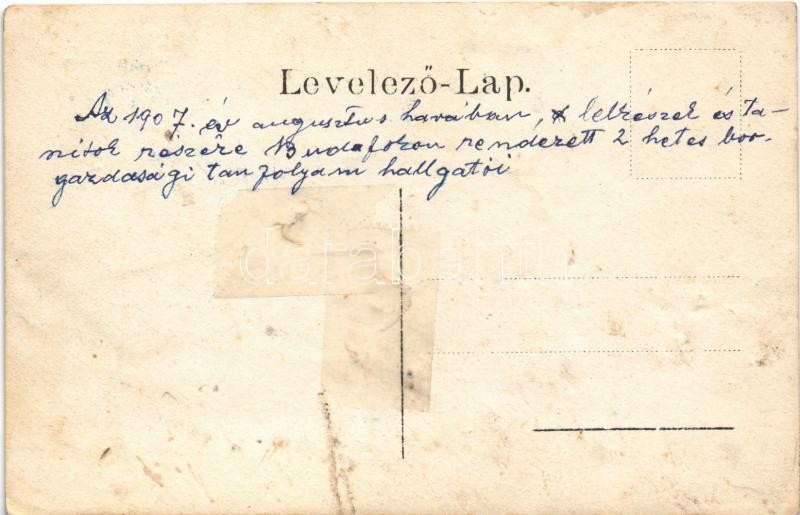 Levelező-Lap.
Az 1907. év augusztus havában, lelkészek és ta-
nitok részére Budafokon rendezett 2 hetes bor-
gazdasági tanfolyam hallgatói
darabanth